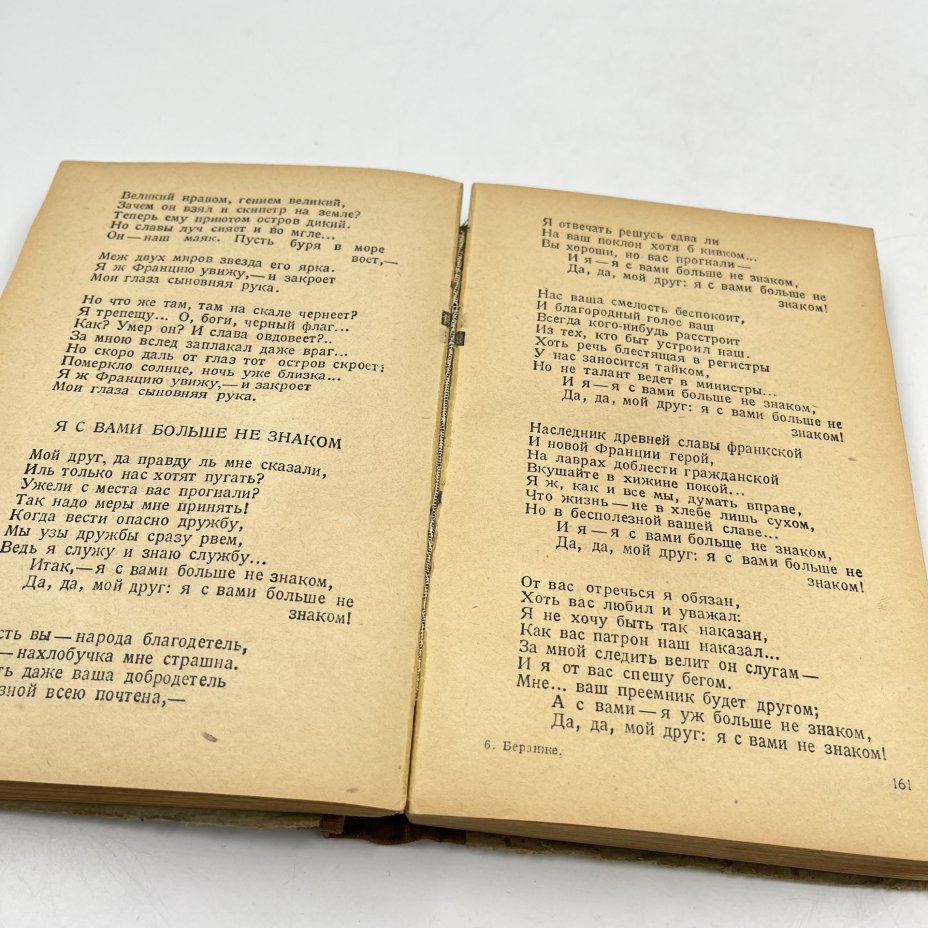 Великий нравом, гением великий,
Зачем он взял и скипетр на земле?
Теперь ему приютом остров дикий.
Но славы луч сияет и во мгле...
Он—наш маяк. Пусть буря в море
воет,—
Меж двух миров звезда его ярка.
Я ж Францию увижу,— и закроет
Мои глаза сыновняя рука.
Но что же там, там на скале чернеет?
Я трепещу... О, боги, черный флаг...
Как? Умер он? И слава овдовеет?..
За мною вслед заплакал даже враг...
Но скоро даль от глаз тот остров скроет;
Померкло солнце, ночь уже близка...
Я ж Францию увижу,— и закроет
Мои глаза сыновняя рука.
Я С ВАМИ БОЛЬШЕ НЕ ЗНАКОМ
Мой друг, да правду ль мне сказали,
Иль только нас хотят пугать?
Ужели с места вас прогнали?
Так надо меры мне принять!
Когда вести опасно дружбу,
Мы узы дружбы сразу рвем,
Ведь я служу и знаю службу...
Итак,—я с вами больше не знаком,
Да, да, мой друг: я с вами больше не
знаком!
сть вы—народа благодетель,
—нахлобучка мне страшна.
ть даже ваша добродетель
зной всею почтена,—
Я отвечать решусь едва ли
На ваш поклон хотя б кивком...
Вы хороши, но вас прогнали—
И я—я с вами больше не знаком,
Да, да, мой друг: я с вами больше не
знаком!
Нас ваша смелость беспокоит,
И благородный голос ваш
Всегда кого-нибудь расстроит
Из тех, кто был устроил наш.
Хоть речь блестящая в регистры
У нас заносится тайком,
Но не талант ведет в министры...
И я—я с вами больше не знаком,
Да, да, мой друг: я с вами больше не
знаком!
Наследник древней славы франкской
И новой Франции герой,
На лаврах доблести гражданской
Вкушайте в хижине покой...
Я ж, как и все мы, думать вправе,
Что жизнь—не в хлебе лишь сухом,
Но в бесполезной вашей славе...
И я—я с вами больше не знаком,
Да, да, мой друг: я с вами больше не
знаком!
От вас отречься я обязан,
Хоть вас любил и уважал:
Я не хочу быть так наказан,
Как вас патрон наш наказал...
За мной следить велит он слугам—
И я от вас спешу бегом.
Мне... ваш преемник будет другом;
А с вами—я уж больше не знаком,
Да, да, мой друг: я с вами не знаком!
6. Беранже.
161